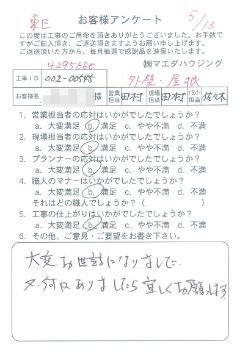 東区 お客様アンケート 5/13
この度は工事のご用命を頂きありがとうございました。お手数で
すがご記入頂き、ご返送頂きますようお願い申し上げます。
ご返送頂いた方に、毎月抽選で感謝品を進呈いたします。
4295680 ㈱マエダハウジング
工事ID 002-00585 外壁・屋根
お客様名 様 営業担当 田村 現場担当 田村 プランナー担当 佐々木
1. 営業担当者の応対はいかがでしたでしょうか?
a. 大変満足 b. 満足 c. やや不満 d. 不満
2. 現場担当者の応対はいかがでしたでしょうか?
a. 大変満足 b. 満足 c. やや不満 d. 不満
3. プランナーの応対はいかがでしたでしょうか?
a. 大変満足 b. 満足 c. やや不満 d. 不満
4. 職人のマナーはいかがでしたでしょうか?
a. 大変満足 b. 満足 c. やや不満 d. 不満
それはどの職人でしょうか?( )
5. 工事の仕上がりはいかがでしたでしょうか?
a. 大変満足 b. 満足 c. やや不満 d. 不満
6. その他、ご意見・ご要望をお書き下さい。
大変お世話になりました。
又、何かありましたら宜しくお願いします